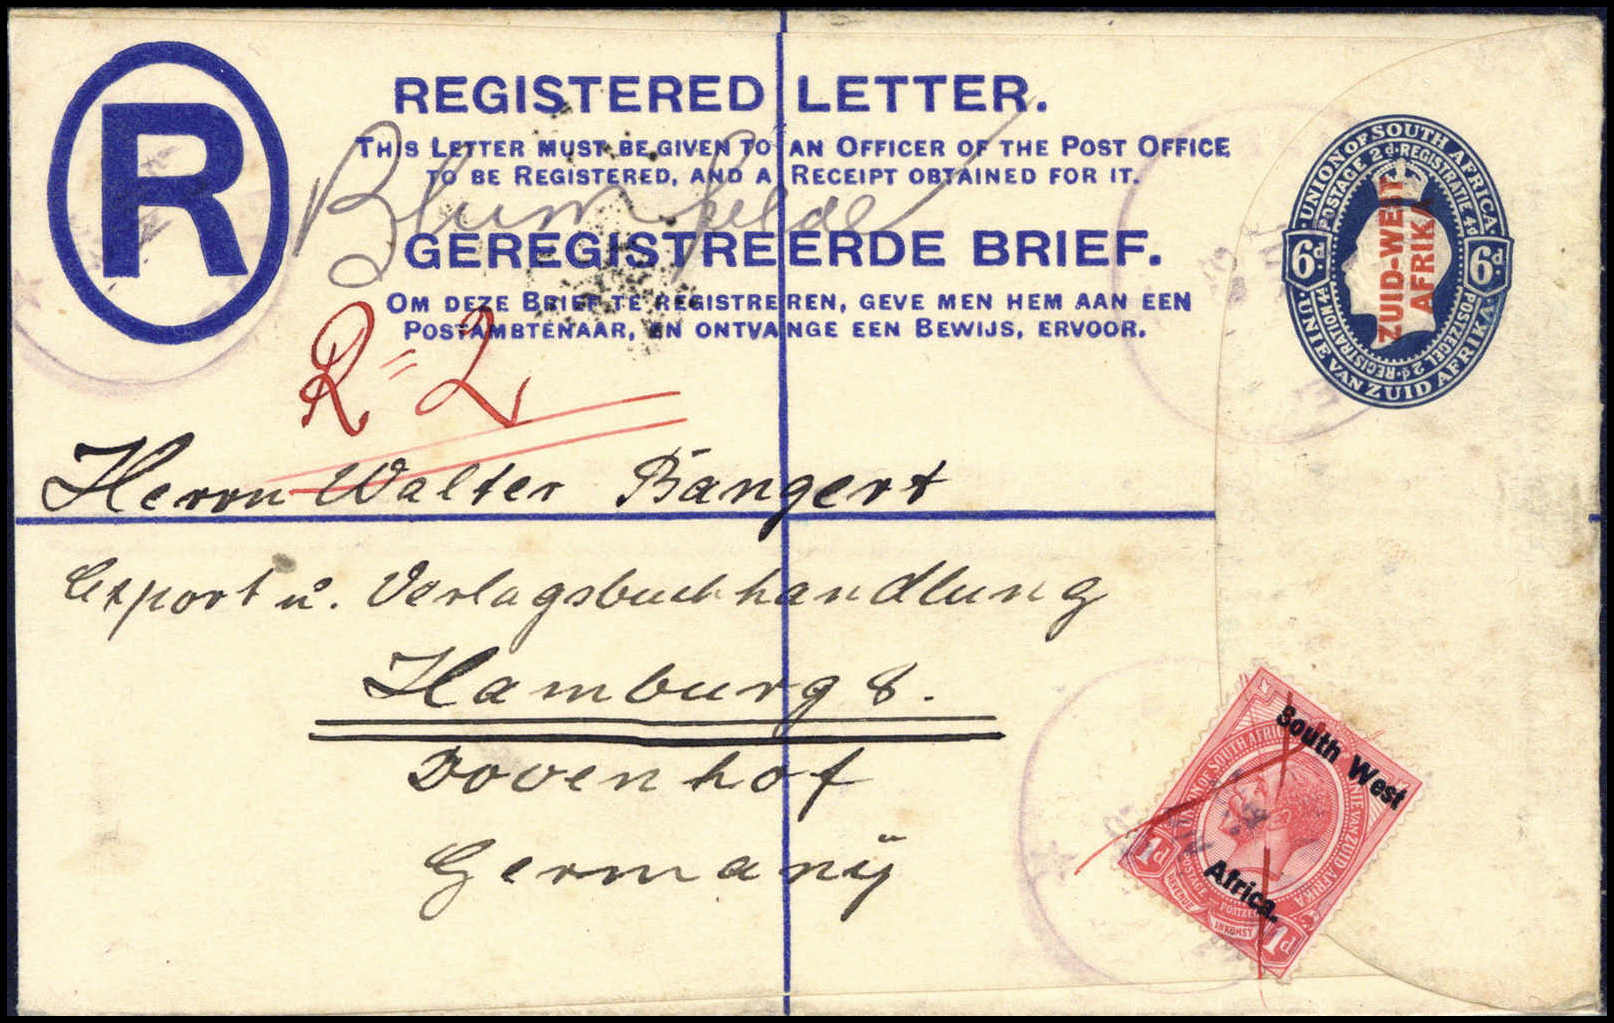 R
REGISTERED LETTER.
THIS LETTER MUST BE GIVEN TO AN OFFICER OF THE POST OFFICE
TO BE REGISTERED, AND A RECEIPT OBTAINED FOR IT.
Blumfelde
GEREGISTREERDE BRIEF.
OM DEZE BRIEF TE REGISTREREN, GEVE MEN HEM AAN EEN
POSTAMBTENAAR, EN ONTVANGE EEN BEWIJS, ERVOOR.
UNION OF SOUTH AFRICA
POSTAGE 2d. REGISTRATIE 4d
6d. 6d.
ZUID-WEST
AFRIKA
REGISTRATION 4d POSTZEGEL 2d.
UNIE VAN ZUID AFRIKA
R=2
Herrn Walter Bangert
Export u. Verlagsbuchhandlung
Hamburg 8.
Dovenhof
Germany
South West
Africa.
UNION OF SOUTH AFRICA
UNIE VAN ZUID AFRIKA
POSTAGE
REVENUE
INKOMST
1d 1d